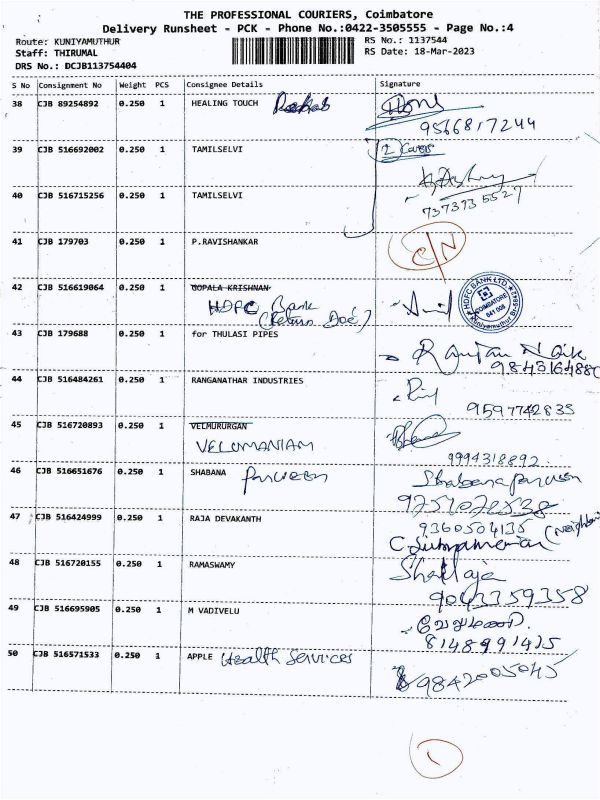 THE PROFESSIONAL COURIERS, Coimbatore
Delivery Runsheet - PCK - Phone No.:0422-3505555 - Page No.:4
Route: KUNIYAMUTHUR RS No.: 1137544
Staff: THIRUMAL RS Date: 18-Mar-2023
DRS No.: DCJB113754404
S No Consignment No Weight PCS Consignee Details Signature
38 CJB 89254892 0.250 1 HEALING TOUCH
9566817244
39 CJB 516692002 0.250 1 TAMILSELVI 2 Covers
40 CJB 516715256 0.250 1 TAMILSELVI
7373735527
41 CJB 179703 0.250 1 P.RAVISHANKAR C/N
42 CJB 516619064 0.250 1 GOPALA KRISHNAN
HDFC Bank
(Return Doc)
HDFC BANK LTD
COIMBATORE
43 CJB 179688 0.250 1 for THULASI PIPES
9843164880
44 CJB 516484261 0.250 1 RANGANATHAR INDUSTRIES
9597742833
45 CJB 516720893 0.250 1 VELMURURGAN
VELUMANIAM
9994318892
46 CJB 516651676 0.250 1 SHABANA Parveen Shabana parveen
47 CJB 516424999 0.250 1 RAJA DEVAKANTH 9360504135
(Neighbour
C. Subramanian
48 CJB 516720155 0.250 1 RAMASWAMY Shailaja
9043359358
49 CJB 516695905 0.250 1 M VADIVELU
8148991415
50 CJB 516571533 0.250 1 APPLE Health Services
9842005045
1